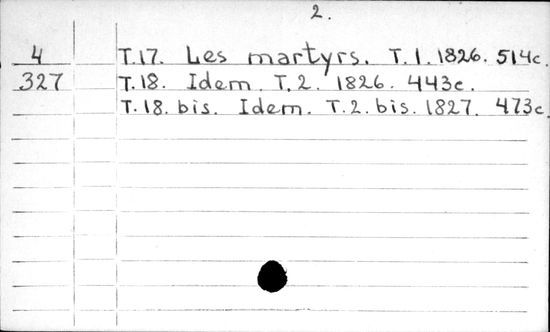 2.
4 T.17. Les martyrs. T.1.1826. 514c.
327 T.18. Idem. T.2. 1826. 443c.
T.18.bis. Idem. T.2.bis.1827. 473c.